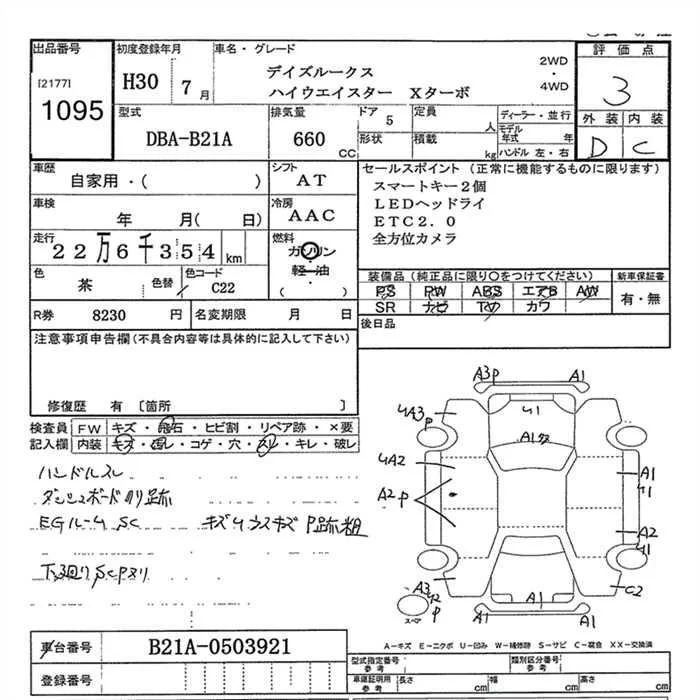 出品番号
[2177]
1095
初度登録年月
H30 7月
車名・グレード
デイズルークス
ハイウエイスター Xターボ
2WD
・
4WD
評価点
3
型式
DBA-B21A
排気量
660 CC
ドア 5
形状
定員 人
積載 kg
ディーラー・並行
モデル年式 年
ハンドル 左・右
外装 内装
D C
車歴
自家用・( )
シフト
AT
車検
年 月( 日)
冷房
AAC
走行
22万6千354 km
燃料
ガソリン
軽油
・
( )
色
茶
色替
色コード
C22
セールスポイント(正常に機能するものに限ります)
スマートキー2個
LEDヘッドライ
ETC2.0
全方位カメラ
装備品(純正品に限り○をつけてください)
PS PW ABS エアB AW
SR ナビ TV カワ
新車保証書
有・無
後日品
R券 8230 円
名変期限 月 日
注意事項申告欄(不具合内容等は具体的に記入して下さい)
修復歴 有 [箇所 ]
検査員 FW キズ・飛石・ヒビ割・リペア跡・×要
記入欄 内装 キズ・汚レ・コゲ・穴・スレ・キレ・破レ
ハンドルスレ
ダッシュボードのり跡
EGルームSC キズUウスキズ P跡粗
下廻りSCPヌリ
A3P A1
UA3P U1
A1
UA2
A2P
A1
U1
A2
U1
A3
P
スペア
A1 A1
A1
C2
A-キズ E-エクボ U-凹み W-補修跡 S-サビ C-腐食 XX-交換済
車台番号 B21A-0503921
登録番号
型式指定番号
参考
類別区分番号
参考
車庫証明用
参考
長さ cm
幅 cm
高さ cm